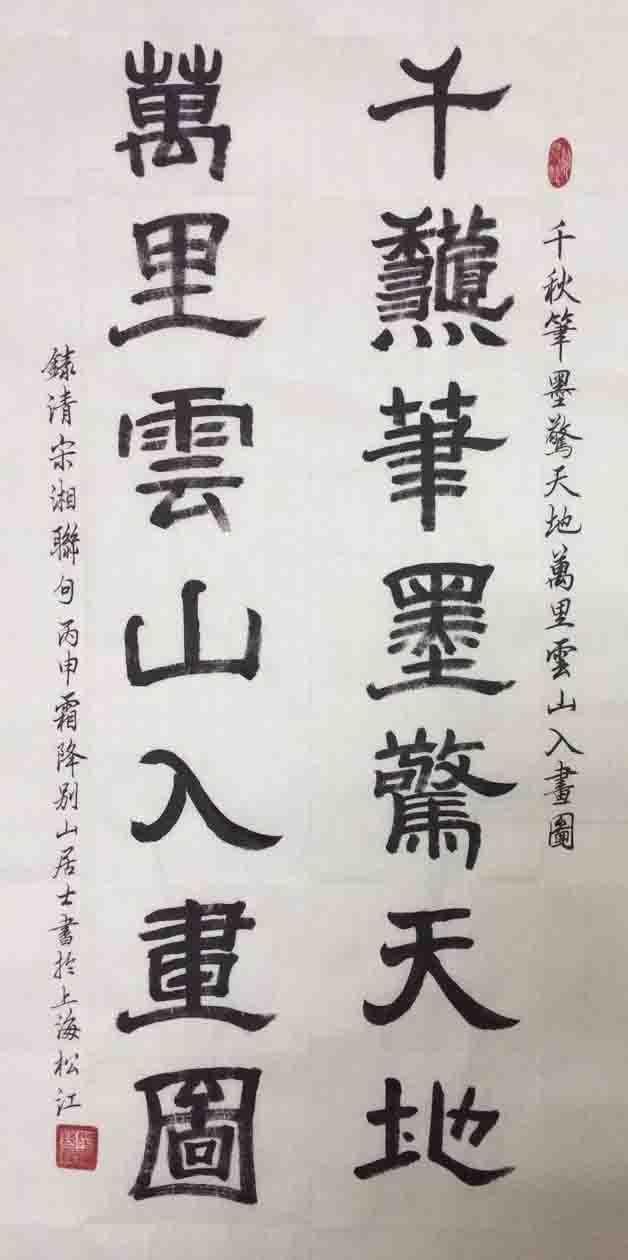 千秋筆墨驚天地萬里雲山入畫圖
千龝筆墨驚天地
萬里雲山入畫圖
錄清宋湘聯句丙申霜降別山居士書於上海松江